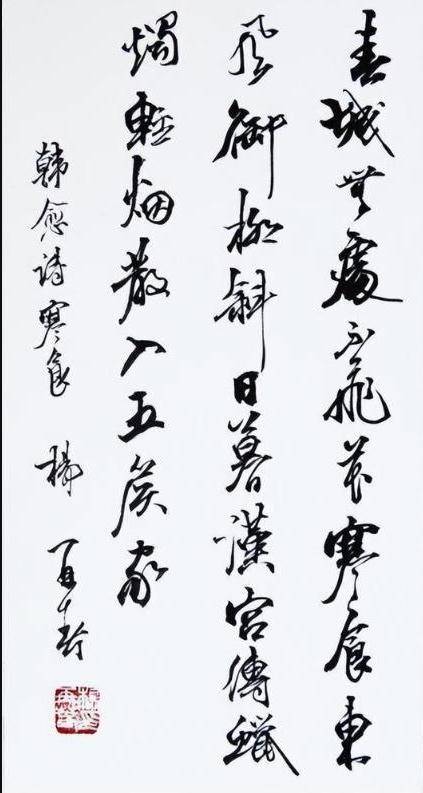 春城無處不飛花寒食東
風御柳斜日暮漢宮傳蠟
燭輕烟散入五侯家
韓愈詩寒食 楊再春